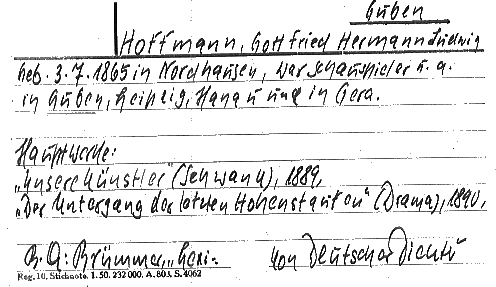 Guben
Hoffmann, Gottfried Hermann Ludwig
geb. 3.7.1865 in Nordhausen, war Schauspieler u.a.
in Guben, Leipzig, Hanau und in Gera.
Hauptwerke:
"Unsere Künstler" (Schwank), 1889,
"Der Untergang der letzten Hohenstaufen" (Drama), 1890,
B.A.: Brümmer, "Lexi-
kon Deutscher Dichter
Reg. 10. Stichnote. 1. 50. 232 000. A. 803. S. 4062